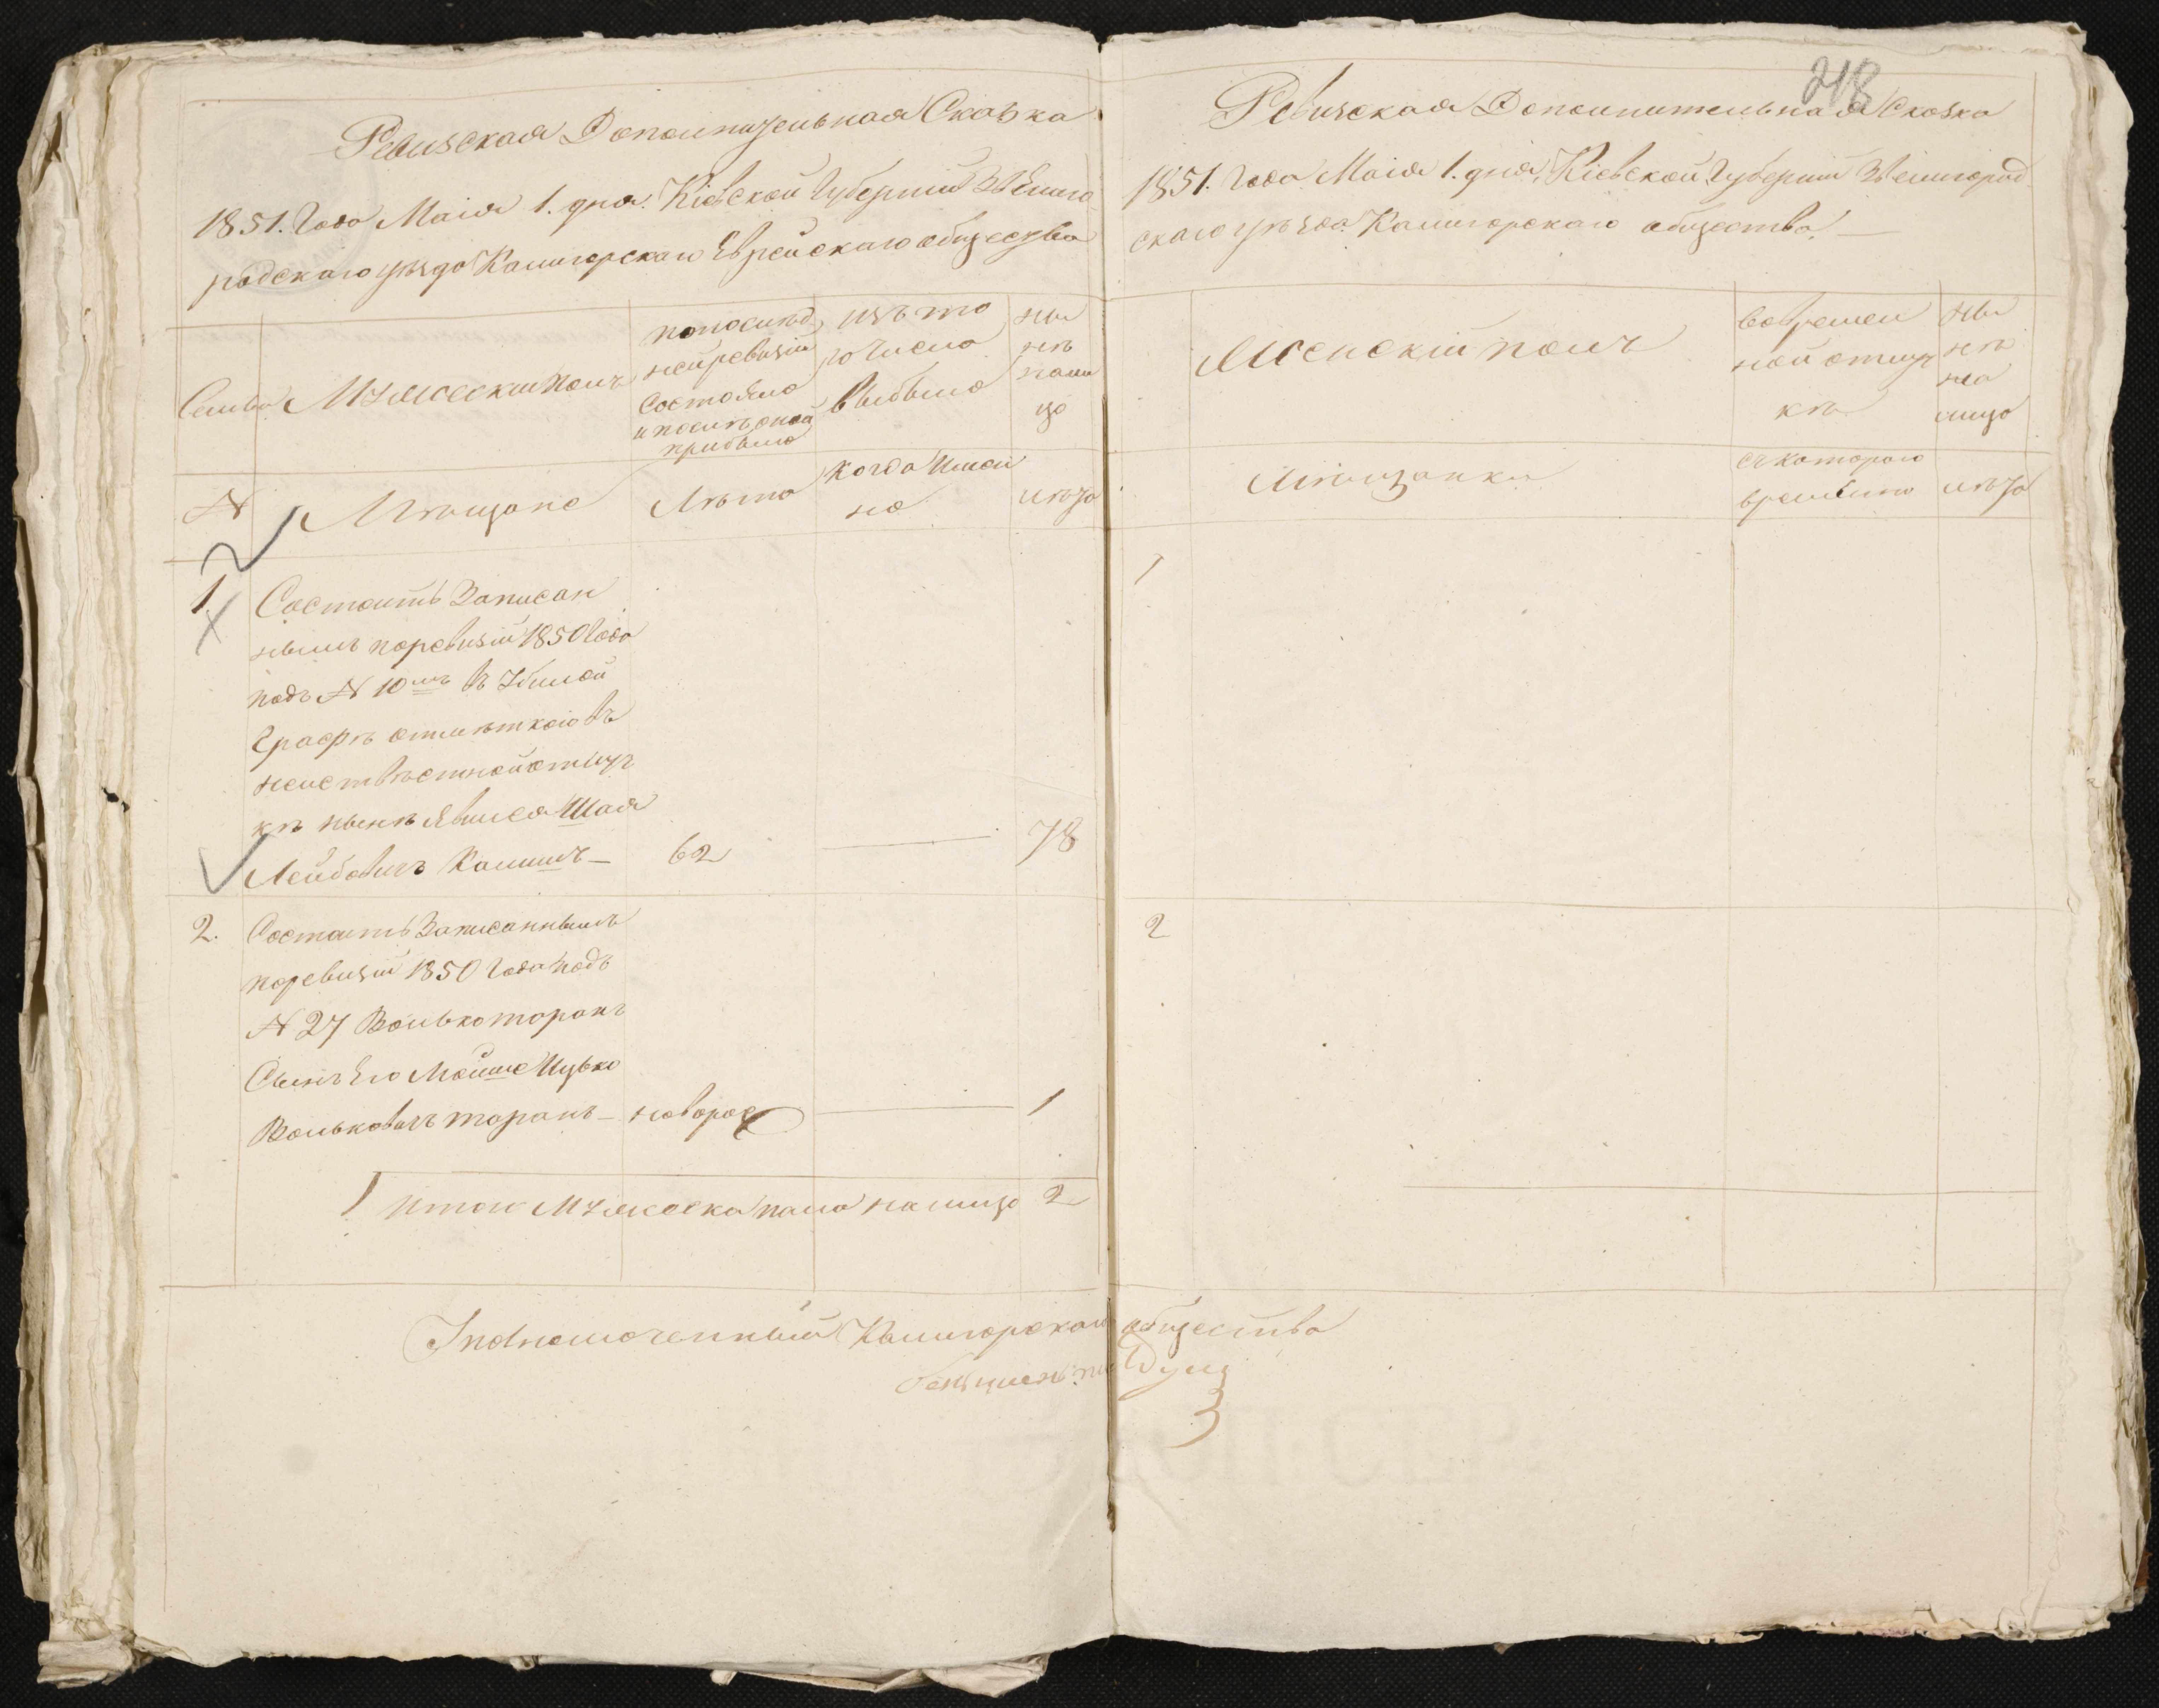 Ревизская Дополнительная Сказка
1851. Года Маія 1. дня. Кіевской Губерніи Звениго
родского уѣзда Калигорскаго Еврейскаго общества
Семьи
Мужескій полъ
по послѣд
ней ревизіи
состояло
и послѣ оной
прибыло
изъ то
го числа
выбыло
ны
нѣ
нали
цо
№
Мѣщане
Лѣта
когда имен
но
лѣта
1.
Состоитъ Записан
нымъ по ревизіи 1850 Года
подъ № 10мъ въ
Графѣ отмѣткою въ
неизвѣстной отлуч
кѣ нынѣ явился Шая
Лейбовичъ 62 78
2. Состоитъ Записаннымъ
по ревизіи 1850 Года подъ
№ 27 Волько таранъ
Сынъ Его Мойше Ицько
Вольковичъ таранъ - новорож 1
Итого Мужеска пола на лицо 2
218
Ревизская Дополнительная Сказка
1851. Года Маія 1. дня, Кіевской Губерніи Звенигород
скаго уѣзда Калигорскаго общества.
Женскій полъ
во времен
ной отлуч
кѣ
ны
нѣ
на
лицо
Мѣщанки
съ котораго
времени
лѣта
1
2
Калигорскаго общества